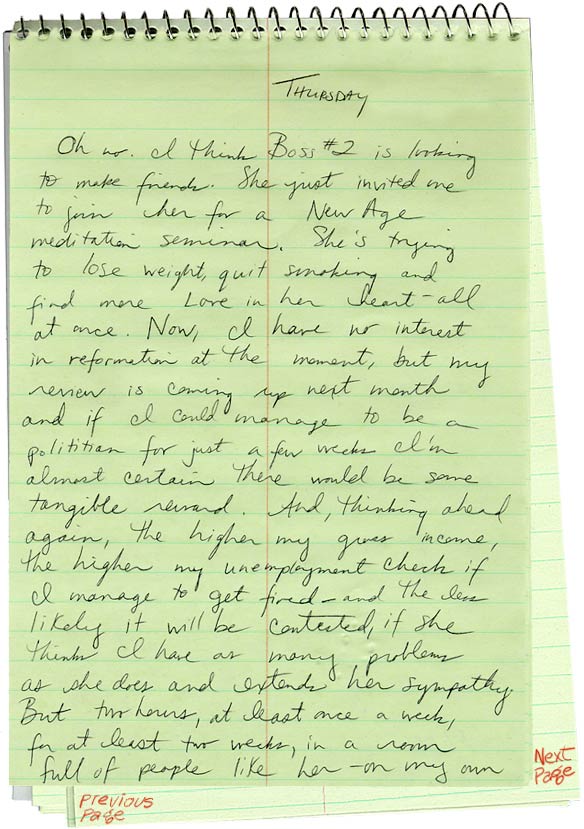 THURSDAY
Oh no. I think Boss #2 is looking
to make friends. She just invited me
to join her for a New Age
meditation seminar. She's trying
to lose weight, quit smoking and
find more Love in her heart - all
at once. Now, I have no interest
in reformation at the moment, but my
review is coming up next month
and if I could manage to be a
politition for just a few weeks I'm
almost certain there would be some
tangible reward. And, thinking ahead
again, the higher my gross income,
the higher my unemployment check if
I manage to get fired - and the less
likely it will be contested, if she
thinks I have as many problems
as she does and extends her sympathy.
But two hours, at least once a week,
for at least two weeks, in a room
full of people like her - on my own
Next
Page
Previous
Page